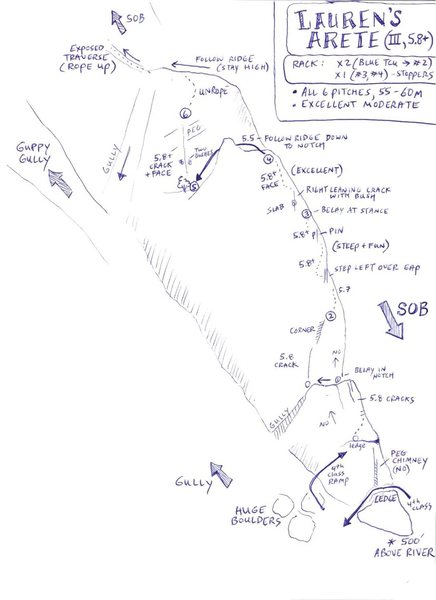 LAUREN'S
ARETE (III, 5.8+)
RACK: x2 (BLUE TCU → #2)
x1 (#3, #4) - STOPPERS
• ALL 6 PITCHES, 55-60M
• EXCELLENT MODERATE
SOB
EXPOSED
TRAVERSE
(ROPE UP)
FOLLOW RIDGE
(STAY HIGH)
UNROPE
6
PEG
GULLY
GUPPY
GULLY
5.8+
CRACK
+ FACE
5.5 - FOLLOW RIDGE DOWN
TO NOTCH
4
5
(EXCELLENT)
5.8+
FACE
RIGHT LEANING CRACK
WITH BUSH
SLAB
3
BELAY AT STANCE
5.8+
PIN
(STEEP + FUN)
5.8+
STEP LEFT OVER GAP
5.7
SOB
2
CORNER
5.8
CRACK
NO
BELAY IN
NOTCH
5.8 CRACKS
GULLY
NO
ledge
PEG
CHIMNEY
(NO)
4th
CLASS
RAMP
GULLY
LEDGE
4th
CLASS
HUGE
BOULDERS
* 500'
ABOVE RIVER